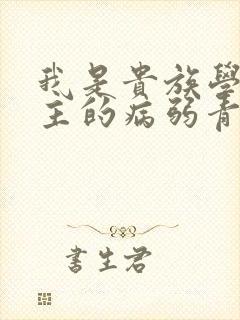 我是貴族學
主的病弱青
書生君